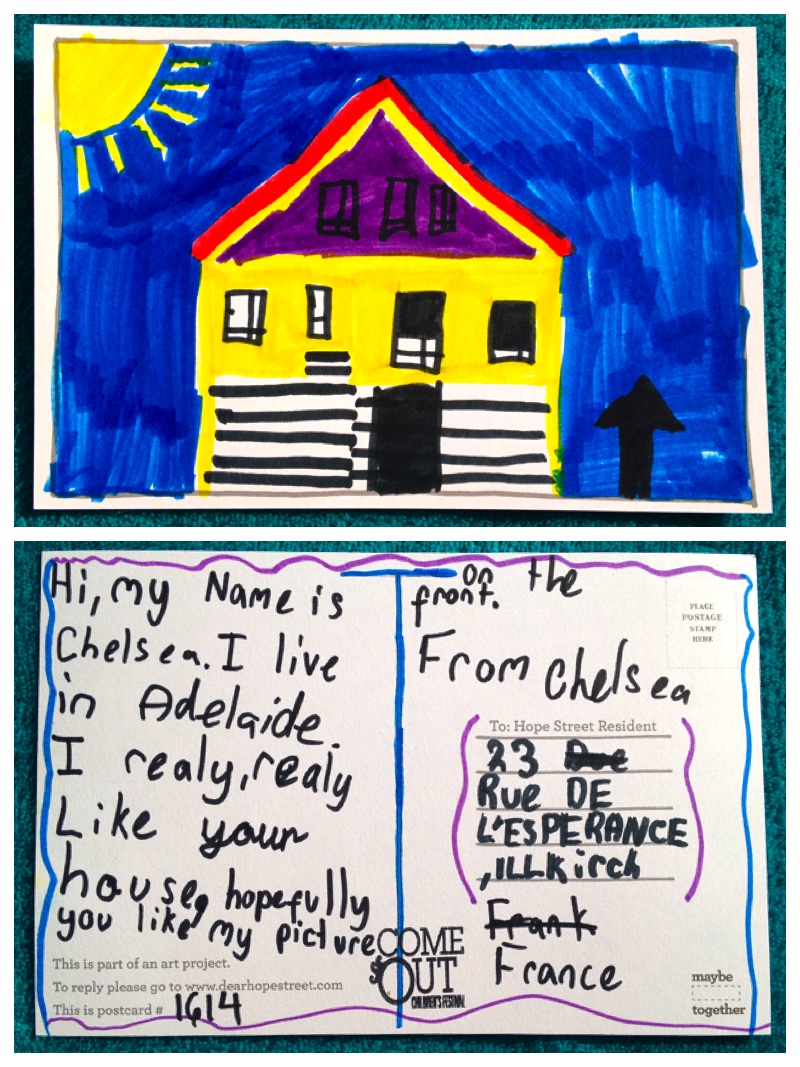 Hi, my Name is
Chelsea. I live
in Adelaide.
I realy, realy
Like your
house, hopefully
you like my picture
on the
front.
From Chelsea
PLACE
POSTAGE
STAMP
HERE
To: Hope Street Resident
23
Rue DE
L'ESPERANCE
,ILLKirch
Frank
France
This is part of an art project.
To reply please go to www.dearhopestreet.com
This is postcard # 1614
COME
OUT
CHILDREN'S FESTIVAL
maybe
together